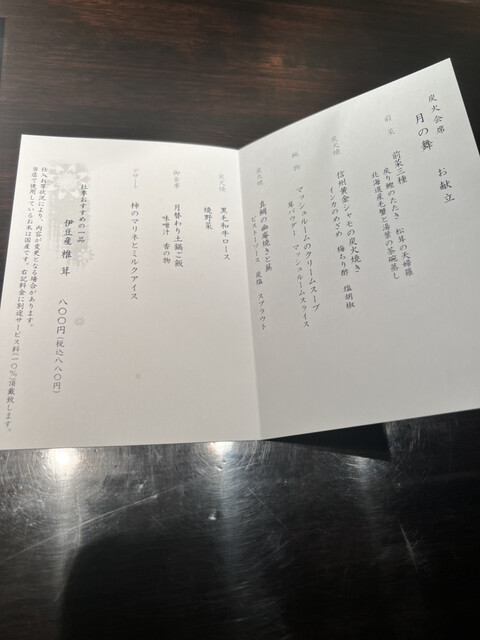 炭火会席
月の舞　お献立
前菜
前菜三種
戻り鰹のたたき　松茸の天婦羅
北海道産毛蟹と湯葉の茶碗蒸し
炭火焼
信州黄金シャモの炭火焼き
インカのめざめ　梅ちり酢　塩胡椒
椀物
マッシュルームのクリームスープ
茸バター　マッシュルームスライス
炭火焼
真鯛の幽庵焼きと蕪
ピストゥソース　炭塩　スプラウト
炭火焼
黒毛和牛ロース
焼野菜
御食事
月替わり土鍋ご飯
味噌汁　香の物
デザート
柿のマリネとミルクアイス
仕事おすすめの一品
伊豆産椎茸　八〇〇円(税込八八〇円)
仕入れ等状況により、内容が変更となる場合があります。
当店で使用しているお米は国産です。右記料金に別途サービス料(一〇%)頂戴致します。